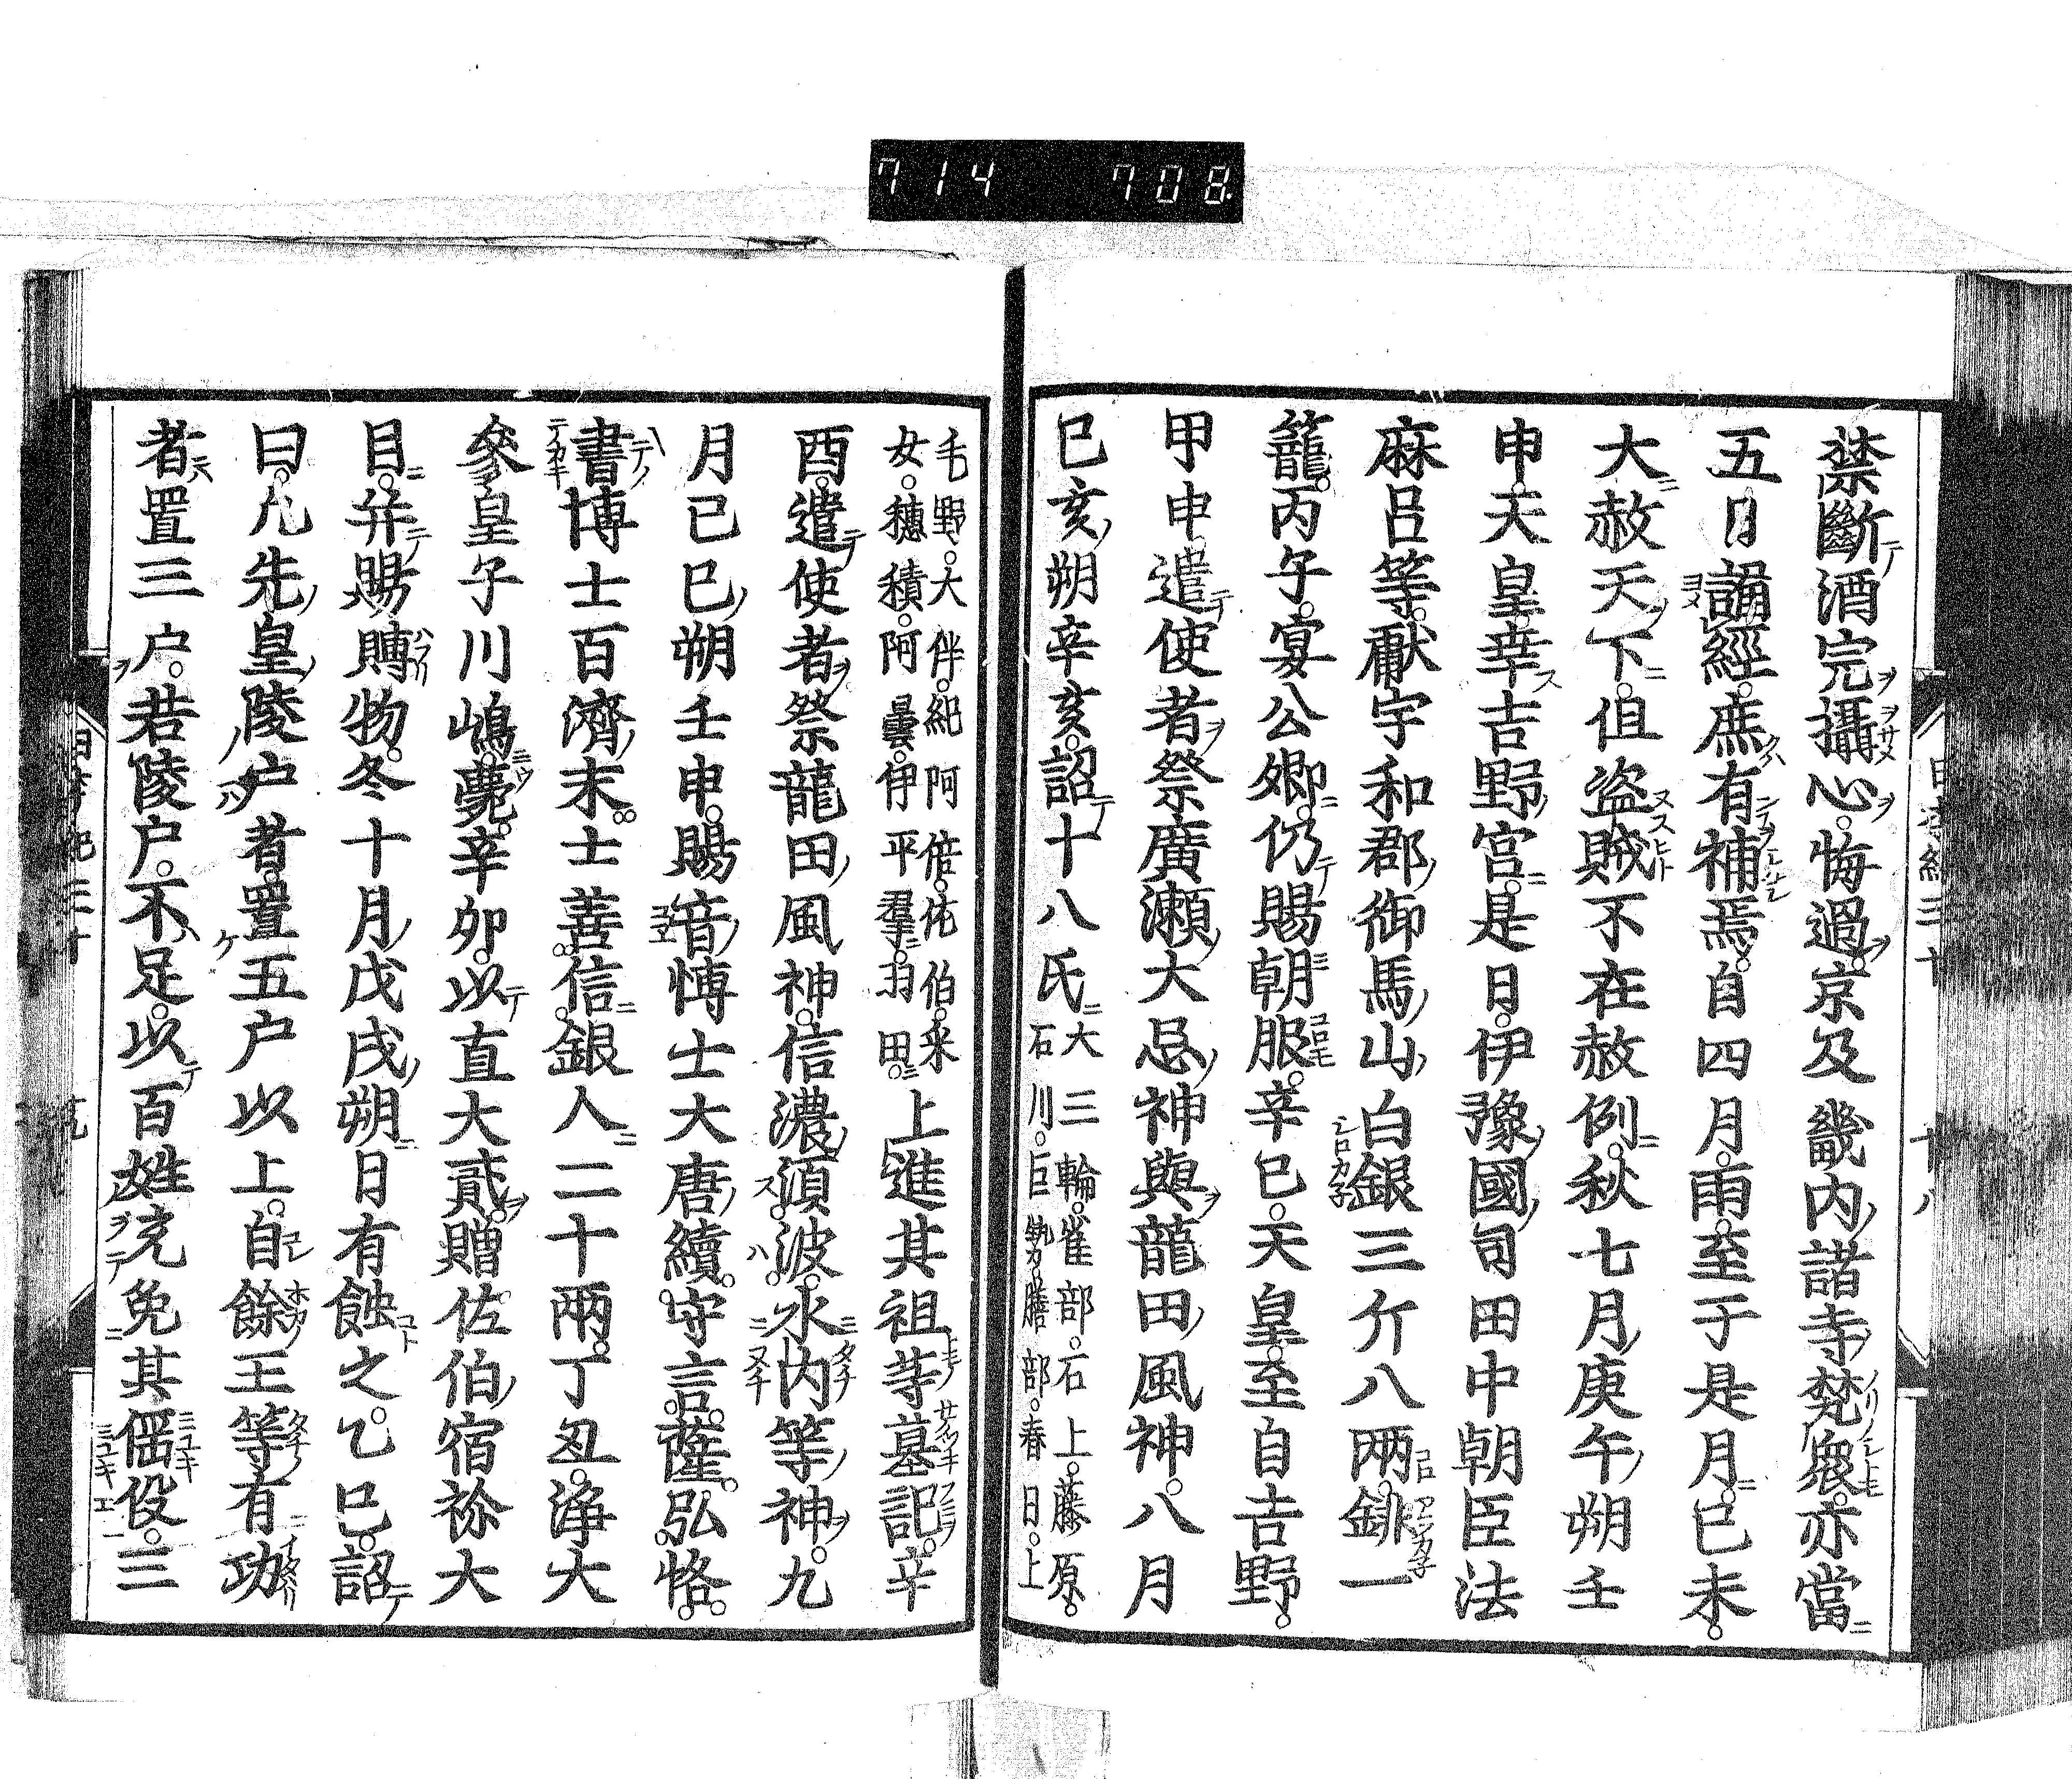 714 708
禁斷酒完攝心悔過京及畿内諸寺梵衆亦當
五日誦經庶有補焉自四月雨至于是月己未
大赦天下但盗賊不在赦例秋七月庚午朔壬
申天皇幸吉野宮是日伊豫國司田中朝臣法
麻呂等獻宇和郡御馬山白銀三斤八兩銚一
籠丙午宴公卿仍賜朝服辛巳天皇至自吉野
甲申遣使者祭廣瀬大忌神與龍田風神八月
巳亥朔辛亥詔十八氏大三輪雀部石上藤原石川巨勢膳部春日上
毛野大伴紀阿倍佐伯采女穗積阿曇伊平羣羽田上進其祖等墓記辛
酉遣使者祭龍田風神信濃湏波水内等神九
月己巳朔壬申賜音博士大唐續守言薩弘恪
書博士百濟末士善信銀人二十兩丁丑淨大
參皇子川嶋薨辛卯以直大貳贈佐伯宿祢大
目并賜賻物冬十月戊戌朔日有蝕之乙巳詔
曰凢先皇陵戸者置五戸以上自餘王等有功
者置三戸若陵戸不足以百姓充免其徭役三